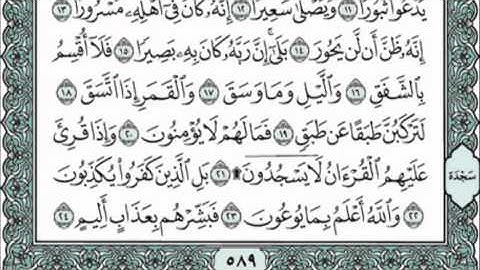 يَدْعُوا۟ ثُبُورًا ١١ وَيَصْلَىٰ سَعِيرًا ١٢ إِنَّهُۥ كَانَ فِىٓ أَهْلِهِۦ مَسْرُورًا ١٣
إِنَّهُۥ ظَنَّ أَن لَّن يَحُورَ ١٤ بَلَىٰٓ إِنَّ رَبَّهُۥ كَانَ بِهِۦ بَصِيرًا ١٥ فَلَآ أُقْسِمُ
بِٱلشَّفَقِ ١٦ وَٱلَّيْلِ وَمَا وَسَقَ ١٧ وَٱلْقَمَرِ إِذَا ٱتَّسَقَ ١٨
لَتَرْكَبُنَّ طَبَقًا عَن طَبَقٍ ١٩ فَمَا لَهُمْ لَا يُؤْمِنُونَ ٢٠ وَإِذَا قُرِئَ
عَلَيْهِمُ ٱلْقُرْءَانُ لَا يَسْجُدُونَ ۩ ٢١ بَلِ ٱلَّذِينَ كَفَرُوا۟ يُكَذِّبُونَ
٢٢ وَٱللَّهُ أَعْلَمُ بِمَا يُوعُونَ ٢٣ فَبَشِّرْهُم بِعَذَابٍ أَلِيمٍ ٢٤
سَجْدَة
٥٨٩